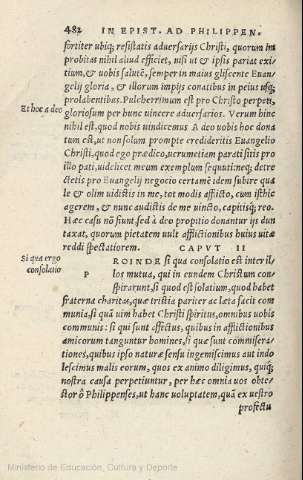 482 IN EPIST. AD PHILIPPEN.
fortiter ubiq; resistatis aduersarijs Christi, quorum im
probitas nihil aliud efficiet, nisi ut & ipsis pariat exi
tium, & uobis salutē, semper in maius gliscente Euan
gelij gloria, & illorum impijs conatibus in peius usq;
prolabentibus. Pulcherrimum est pro Christo perpeti,
Et hoc a deo
gloriosum per hunc uincere aduersarios. Verum hinc
nihil est, quod nobis uindicemus. A deo uobis hoc dona
tum est, ut non solum prompte credideritis Euangelio
Christi, quod ego prædico, uerumetiam parati sitis pro
illo pati, uidelicet meum exemplum sequuti: neq; detre
ctetis pro Euangelij negocio certamē idem subire qua
le & olim uidistis in me, tot modis afflicto, cum isthic
agerem, & nunc auditis de me uincto, capitisq; reo.
Hæc casu nō fiunt, sed à deo propitio donantur ijs dun
taxat, quorum pietatem uult afflictionibus huius uitæ
reddi spectatiorem. CAPVT II
Si qua ergo
consolatio
PROINDE si qua consolatio est inter il/
los mutua, qui in eundem Christum con/
spirarunt, si quod est solatium, quod habet
fraterna charitas, quæ tristia pariter ac læta facit com
munia, si quā uim habet Christi spiritus, omnibus uobis
communis: si qui sunt affectus, quibus in afflictionibus
amicorum tanguntur homines, si quæ sunt commisera/
tiones, quibus ipso naturæ sensu ingemiscimus aut indo
lescimus malis eorum, quos ex animo diligimus, quiq;
nostra causa perpetiuntur, per hæc omnia uos obte/
stor ô Philippenses, ut hanc uoluptatem, quā ex uestro
profectu
Ministerio de Educación, Cultura y Deporte